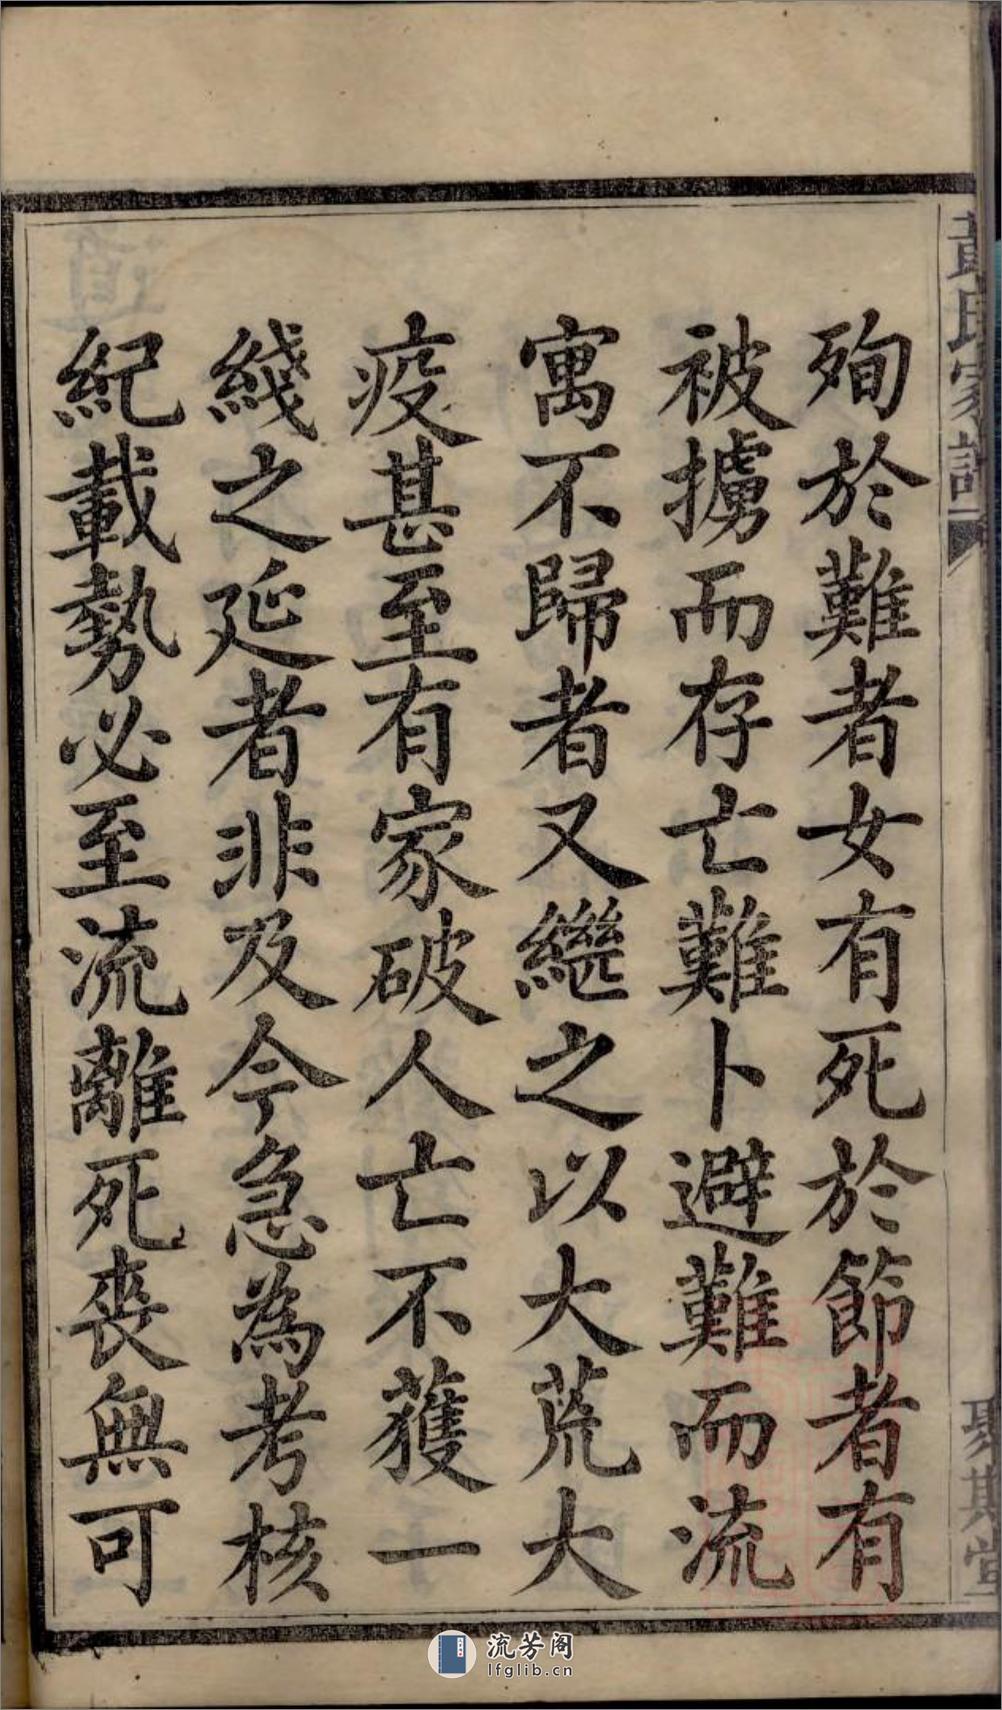 殉於難者女有死於節者有
被擄而存亡難卜避難而流
寓不歸者又繼之以大荒大
疫甚至有家破人亡不獲一
綫之延者非及今急為考核
紀載勢必至流離死喪無可
氏家譜
斯堂
流芳阁
lfglib.cn